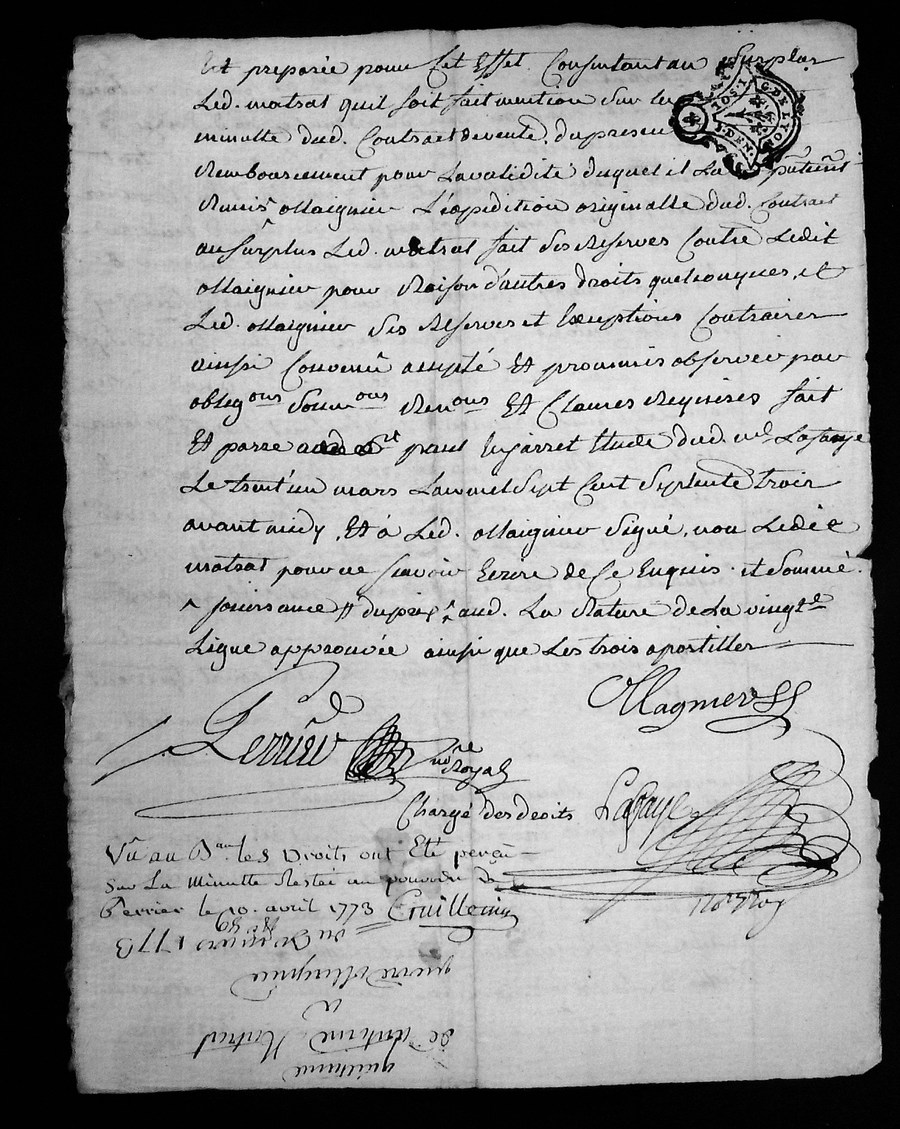 Et preparée pour Cet Effet. Consentant au Surplus
Led. matrat quil soit fait mention Sur la
minutte dud. Contract de vente, du present
Remboursement pour La validité duquel il La pñtemt
Remis Maignier L'expédition originalle dud. Contrat
au Surplus Led. matrat fait Ses Reserves Contre Ledit
Maignier pour Raison d'autres droits quelconques, et
Led. Maignier Ses Reserves et Exceptions Contraires
ainsi Convenû accepté Et proumis observer par
obligons Soumons Renons Et Clauses Requises fait
Et passé aud. paul Etude dud. me. Lafaye
Le trent'un mars L'an mil Sept Cent Septente trois
avant midy, Et à Led. Maignier Signé, non Ledit
matrat pour ne Scavoir Ecrire de Ce Enquis et Sommé.
^ jouissance # du prix ^ aud. La Rature de La vingte
Ligue approuvée ainsi que Les trois apostilles
Magnier
Perrier
nore Royal
Chargé des droits Lafaye
Vû au Bau les Droits ont Eté perçu
Sur La Minutte Restée au pouvoir de
Perrier le 10. avril 1773 Cuillemin
nore Roy
quittance
de antoine Matrat
a
pierre Magnier
du 31 mars 1773
G. DE LYON